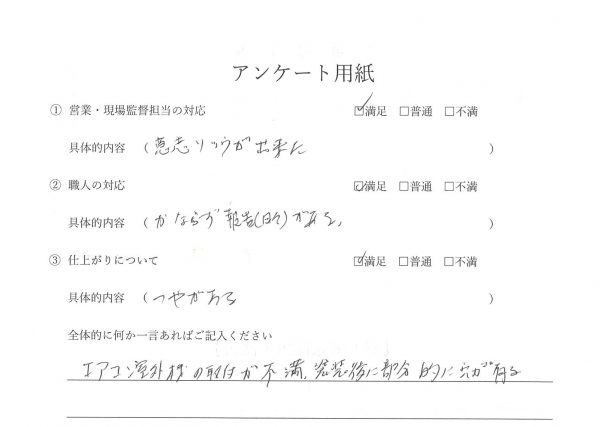 アンケート用紙
① 営業・現場監督担当の対応 ☑満足 □普通 □不満
具体的内容 （ 意志ソツウが出来た ）
② 職人の対応 ☑満足 □普通 □不満
具体的内容 （ かならず報告(日々)がある。 ）
③ 仕上がりについて ☑満足 □普通 □不満
具体的内容 （ つやがある ）
全体的に何か一言あればご記入ください
エアコン室外機の取付が不満、塗装後に部分的に穴が有る